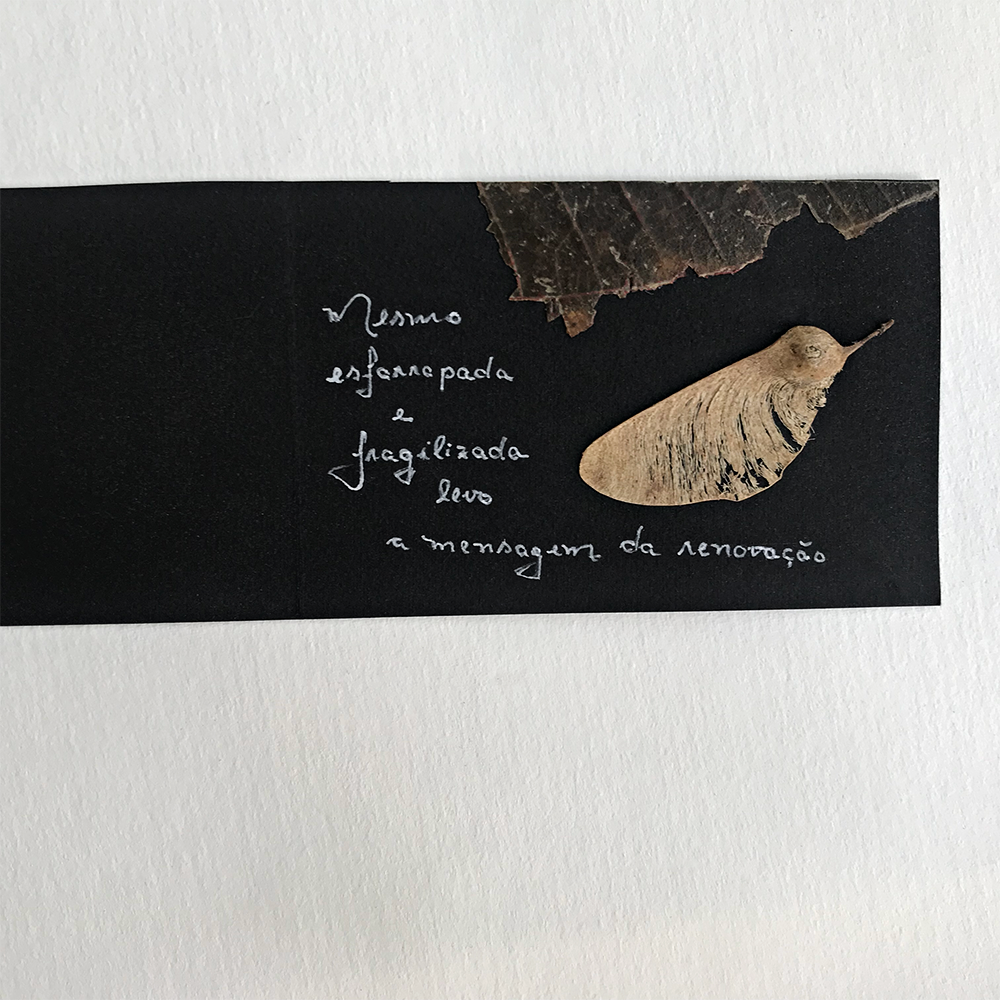 Mesmo
esfarrapada
e
fragilizada
levo
a mensagem da renovação